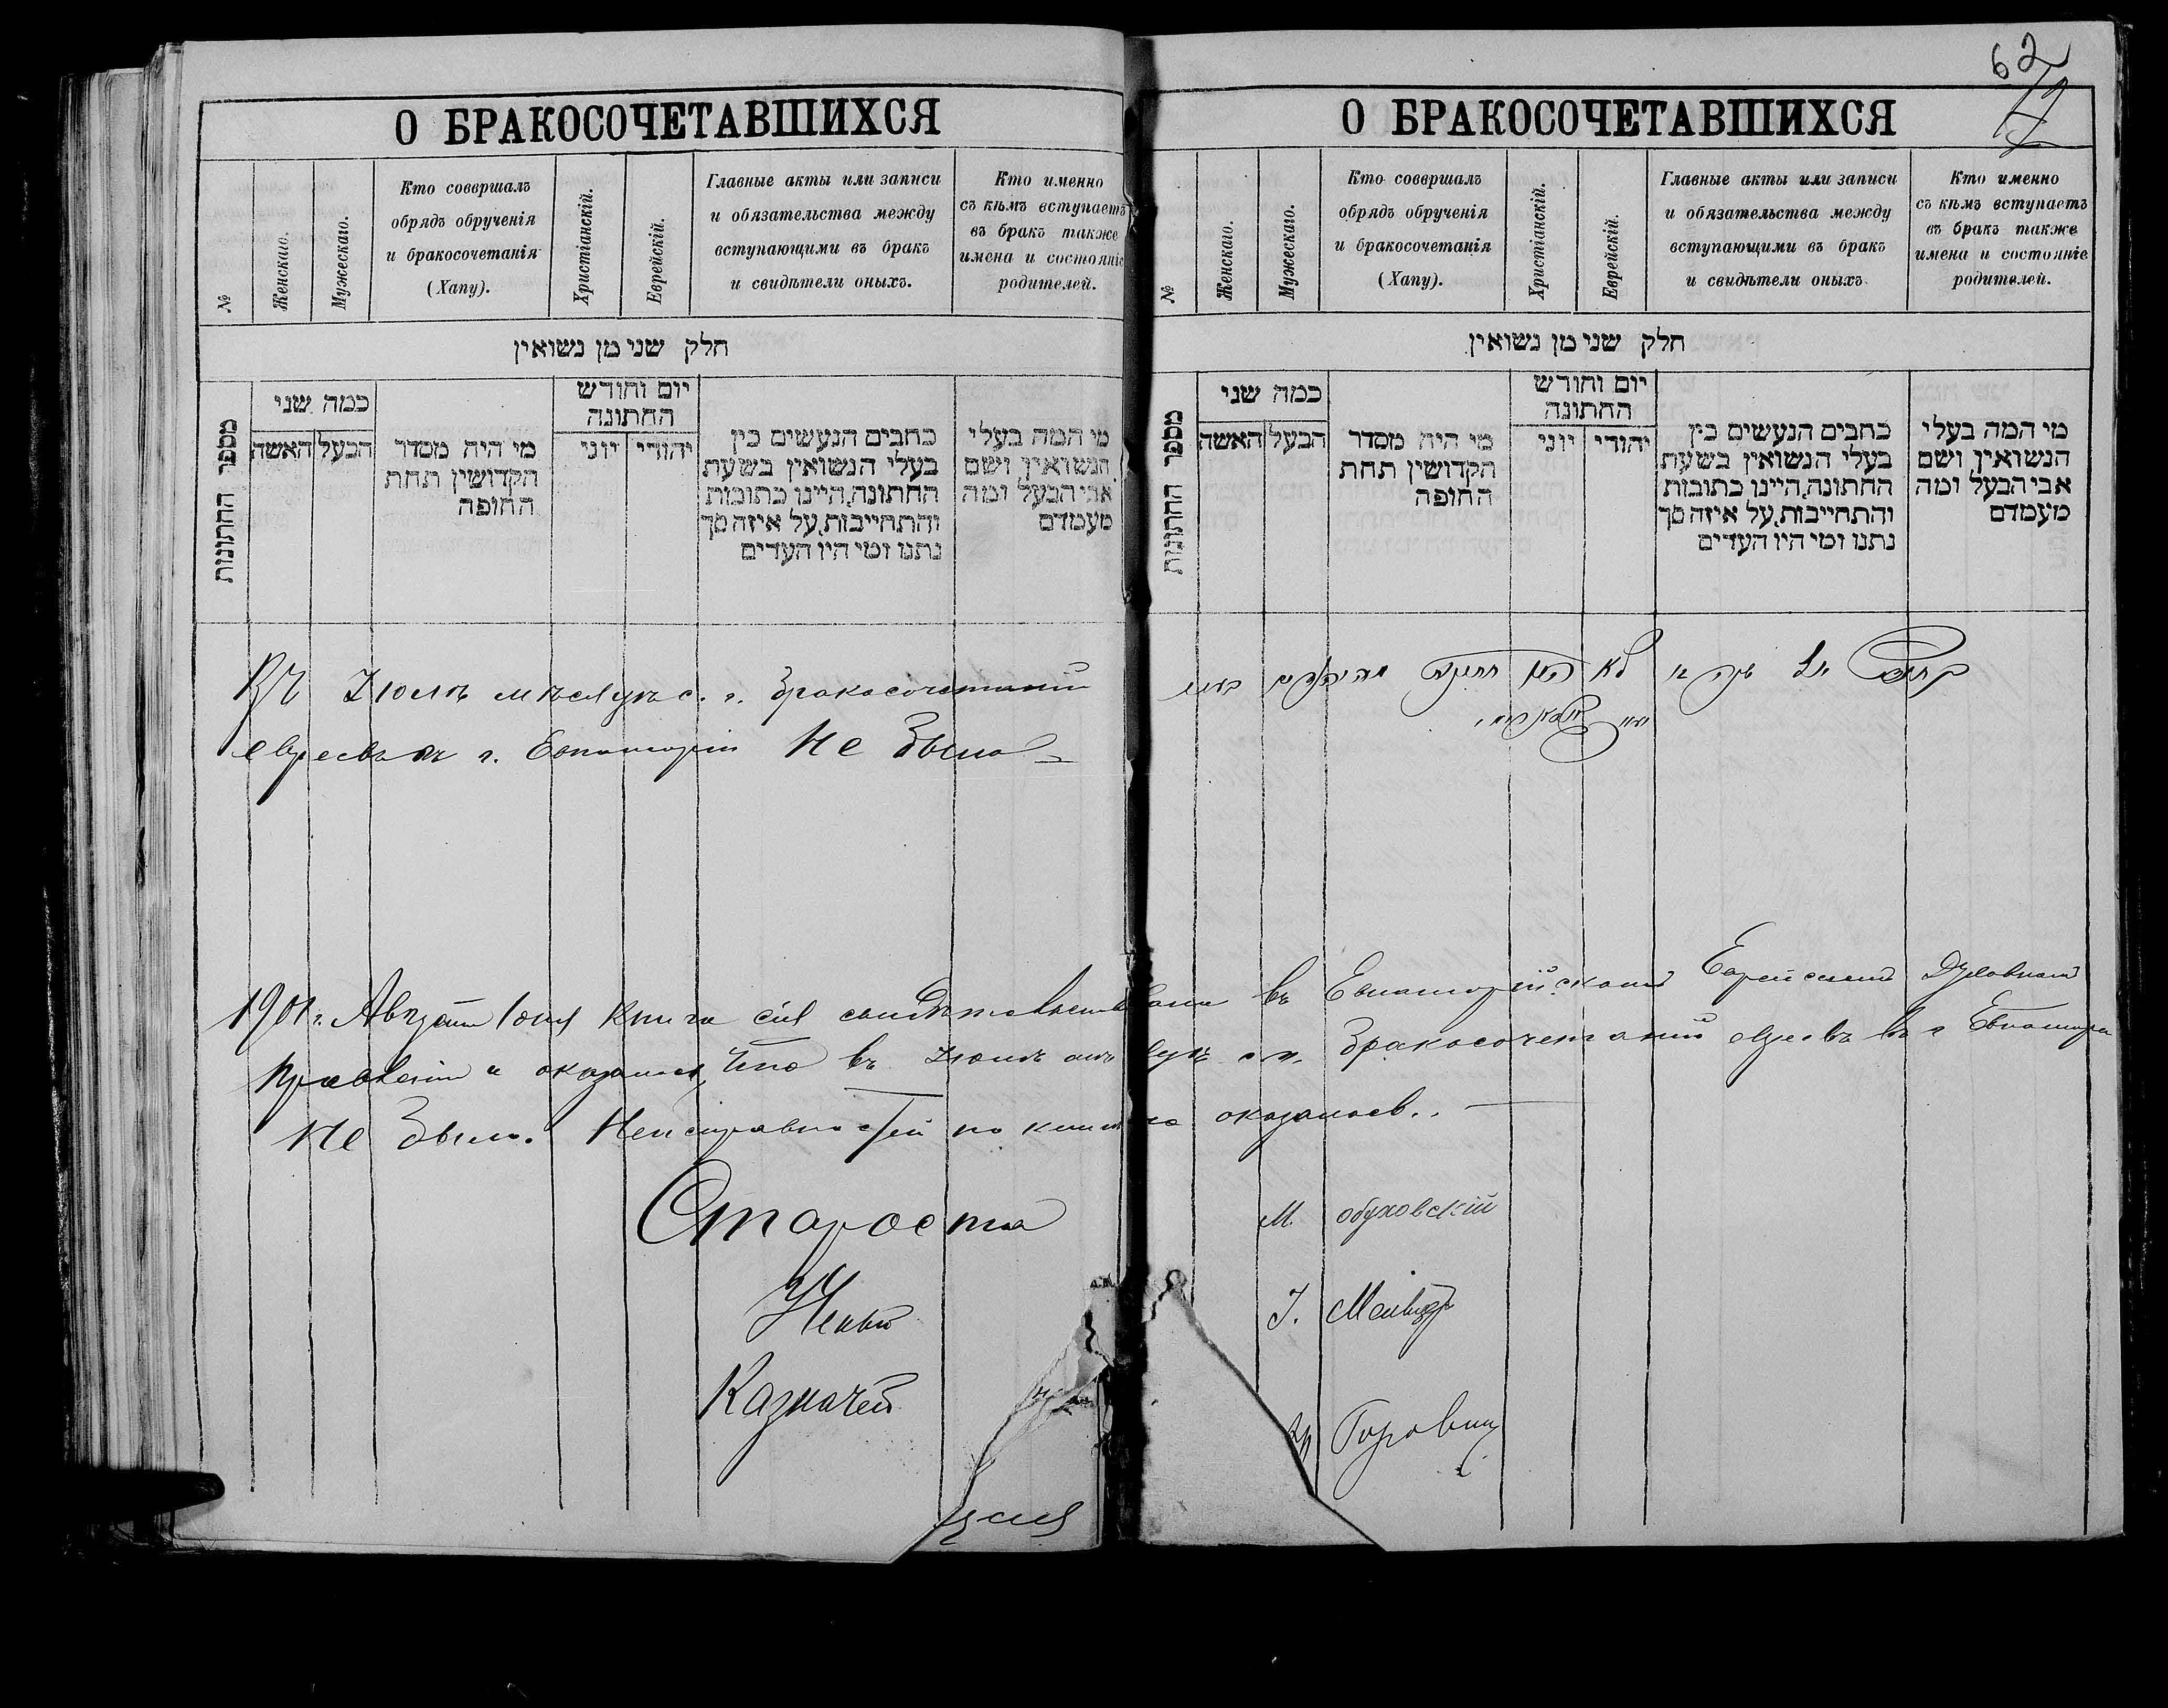 62
О БРАКОСОЧЕТАВШИХСЯ
№
Женскаго.
Мужескаго.
Кто совершалъ
обрядъ обрученія
и бракосочетанія
(Хапу).
Христіанскій.
Еврейскій.
Главные акты или записи
и обязательства между
вступающими въ бракъ
и свидѣтели оныхъ.
Кто именно
съ кѣмъ вступаетъ
въ бракъ также
имена и состояніе
родителей.
חלק שני מן נשואין
מספר החתונות
כמה שני
האשה
הבעל
מי היה מסדר
הקדושין תחת
החופה
יום וחודש
החתונה
יוני
יהודי
כתבים הנעשים בין
בעלי הנשואין בשעת
החתונה, היינו כתובות
והתחייבות, על איזה סך
נתנו ומי היו העדים
מי המה בעלי
הנשואין ושם
אבי הבעל ומה
מעמדם
Въ Іюлѣ мѣсяцѣ с. г. бракосочетаній
евреевъ въ г. Евпаторіи не было
О БРАКОСОЧЕТАВШИХСЯ
№
Женскаго.
Мужескаго.
Кто совершалъ
обрядъ обрученія
и бракосочетанія
(Хапу).
Христіанскій.
Еврейскій.
Главные акты или записи
и обязательства между
вступающими въ бракъ
и свидѣтели оныхъ.
Кто именно
съ кѣмъ вступаетъ
въ бракъ также
имена и состояніе
родителей.
חלק שני מן נשואין
מספר החתונות
כמה שני
האשה
הבעל
מי היה מסדר
הקדושין תחת
החופה
יום וחודש
החתונה
יוני
יהודי
כתבים הנעשים בין
בעלי הנשואין בשעת
החתונה, היינו כתובות
והתחייבות, על איזה סך
נתנו ומי היו העדים
מי המה בעלי
הנשואין ושם
אבי הבעל ומה
מעמדם
1901 г. Августа 1 дня книга сія свидѣтельствована въ Евпаторійскомъ Еврейскомъ Духовномъ
Правленіи и оказалось, что въ Іюлѣ мѣсяцѣ с. г. бракосочетаній евреевъ въ г. Евпаторіи
не было. Неисправностей по книгѣ не оказалось.
Староста М. Обуховскій
Ученый І.
Казначей Горовиц